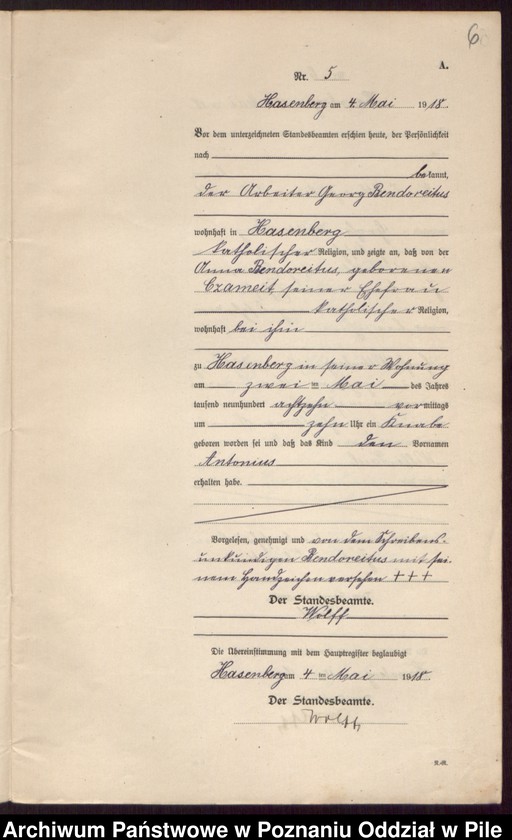 6
A.
Nr. 5
Hasenberg am 4. Mai 1918.
Vor dem unterzeichneten Standesbeamten erschien heute, der Persönlichkeit
nach
bekannt,
der Arbeiter Georg Bendoreitus
wohnhaft in Hasenberg
katholischer Religion, und zeigte an, daß von der
Anna Bendoreitus, geborenen
Czameit, seiner Ehefrau
katholischer Religion,
wohnhaft bei ihm
zu Hasenberg in seiner Wohnung
am zwei ten Mai des Jahres
tausend neunhundert achtzehn vormittags
um zehn Uhr ein Knabe
geboren worden sei und daß das Kind den Vornamen
Antonius
erhalten habe.
Vorgelesen, genehmigt und von dem Schreibens-
unkundigen Bendoreitus mit sei-
nem Handzeichen versehen +++
Der Standesbeamte.
Wolff
Die Übereinstimmung mit dem Hauptregister beglaubigt
Hasenberg am 4 ten Mai 1918.
Der Standesbeamte.
Wolff
Archiwum Państwowe w Poznaniu Oddział w Pile